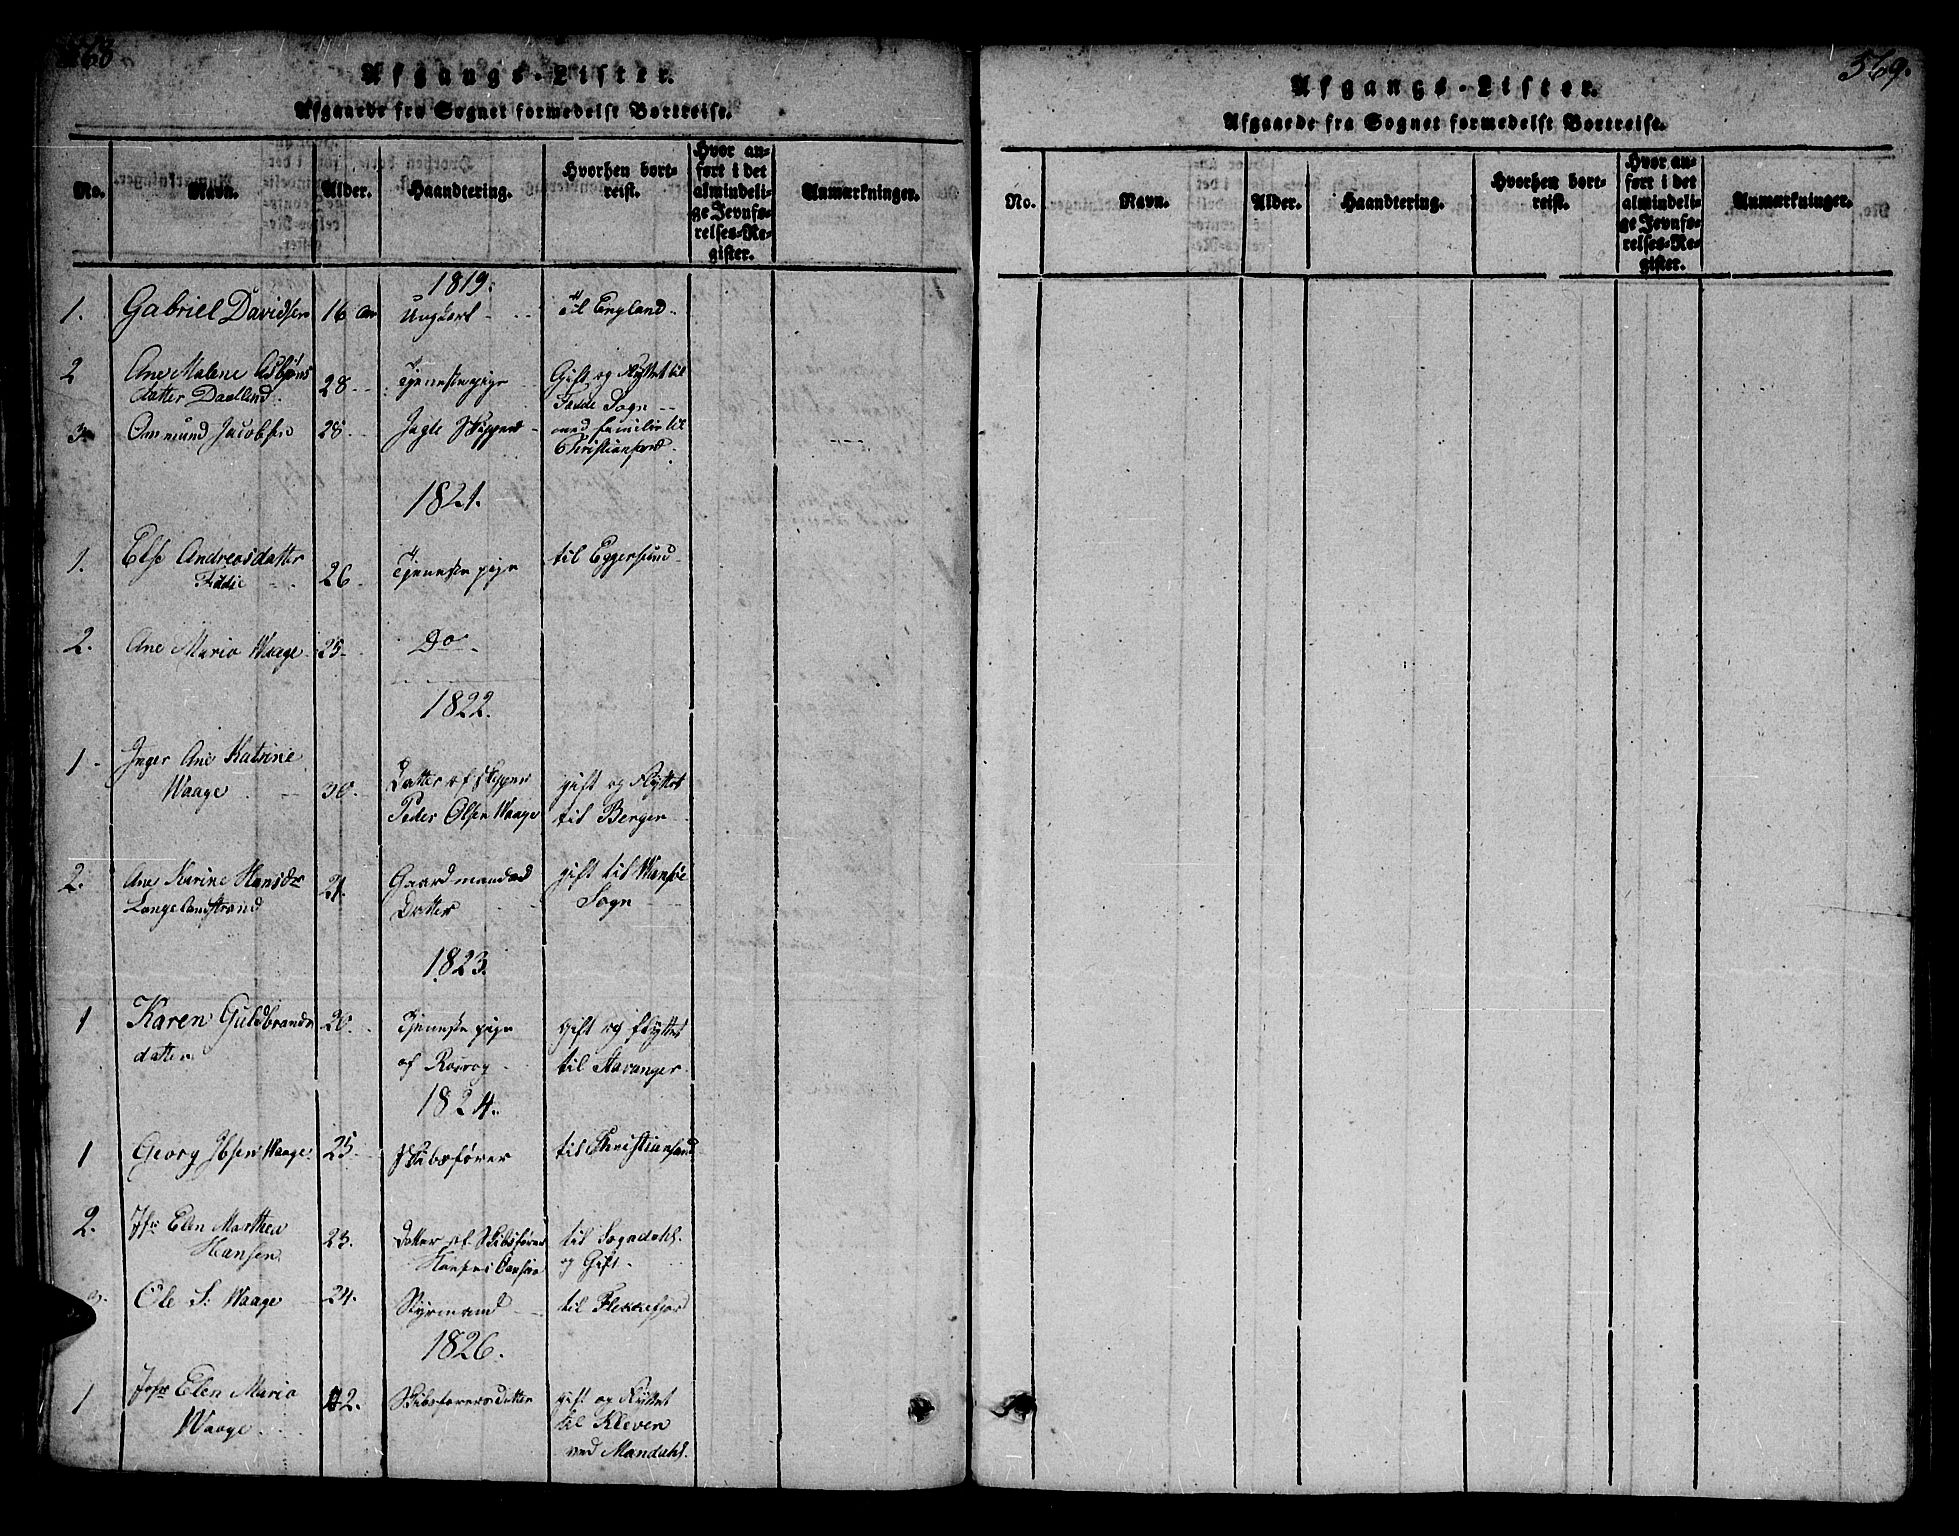 568
Afgangs-Lister.
Afgaaede fra Sognet formedelst Bortreise.
No. Navn. Alder. Haandtering. Hvorhen bortreist. Hvor anført i det almindelige Jevnførelses-Register. Anmærkninger.
1819.
1. Gabriel Davidsen 16 Aar Ungkarl - til England.
2 Ane Malene Asbjøns
datter Daelend. 28 - Tjenestepige Gift og flyttet til
Sogn
3 Ommund Jacobsen 28 Jagte Skipper - med familie til
Christiansand.
1821.
1. Else Andreasdatter
26 Tjenestepige til Eggersund
2. Ane Maria Waage 25. Do
1822.
1 - Inger Ane Katrine
Waage 30. Datter af Skipper
Peder Olsen Waage gift og flyttet
til Bergen
2. Ane Karine Hansdr
Langelandstrand 21. Gaardmands
Datter gift til Wanse
Sogn
1823.
1 Karen Guldbrands
datter 20. Tjenestepige
af gift og flyttet
til Stavanger
1824.
1 Georg Ibsen Waage 25 Skibsfører til Christiansand
2. Jfr Elen Marthea
Hansen 23. Datter af Skibsfører
Hansen til Sogndahl
og Gift.
3. Ole S: Waage 24. Styrmand til Flekkefjord
1826.
1 Jfr Elen Maria
Waage 22. Skibsførers datter gift og flyttet
til Kleven
ved Mandahl.
569.
Afgangs-Lister.
Afgaaede fra Sognet formedelst Bortreise.
No. Navn. Alder. Haandtering. Hvorhen bortreist. Hvor anført i det almindelige Jevnførelses-Register. Anmærkninger.